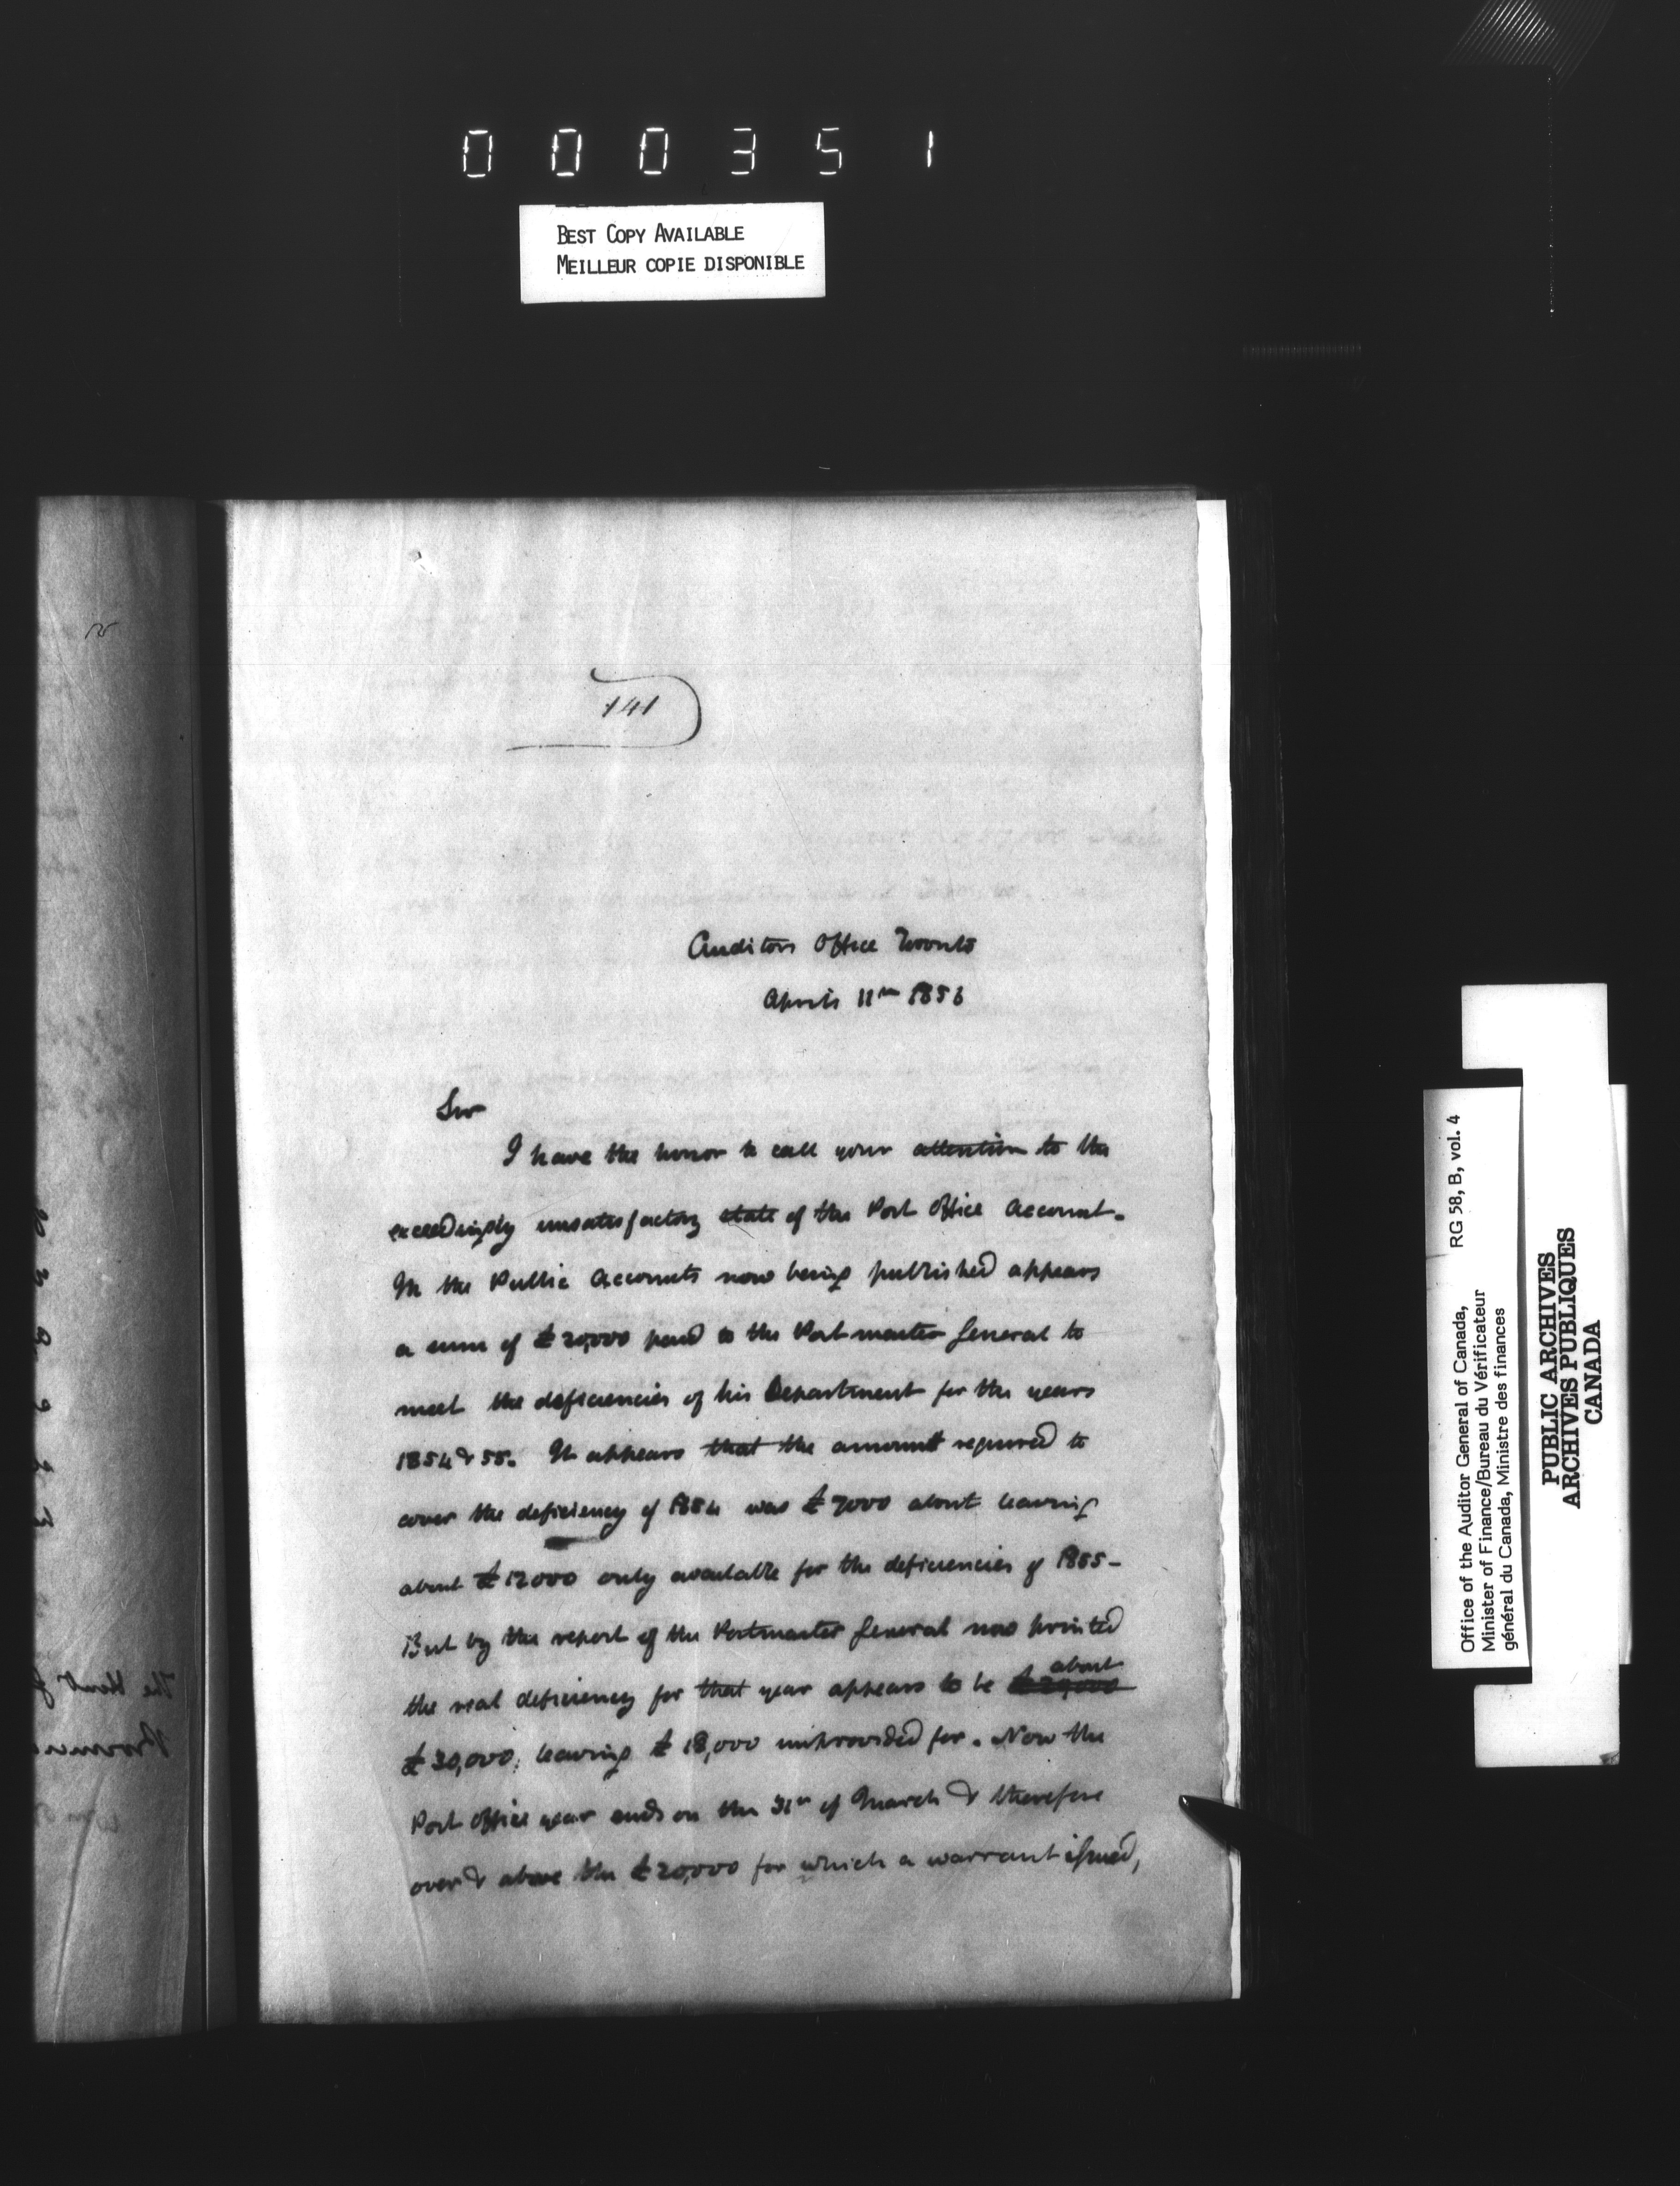 000351
BEST COPY AVAILABLE
MEILLEUR COPIE DISPONIBLE
141
Auditors Office Toronto
April 11th 1856
Sir
I have the honor to call your attention to the
exceedingly unsatisfactory state of the Post Office Account.
In the Public Accounts now being published appears
a sum of £20,000 paid to the Post master General to
meet the deficiencies of his Department for the years
1854 & 55. It appears that the amount required to
cover the deficiency of 1854 was £7000 about leaving
about £12000 only available for the deficiencies of 1855-
But by the report of the Postmaster General now printed
the real deficiency for that year appears to be about
£30,000, leaving £18,000 unprovided for. Now the
Post Office year ends on the 31st of March & therefore
over & above the £20,000 for which a warrant issued,
The Hon
Office of the Auditor General of Canada, RG 58, B, vol. 4
Minister of Finance/Bureau du Vérificateur
général du Canada, Ministre des finances
PUBLIC ARCHIVES
ARCHIVES PUBLIQUES
CANADA